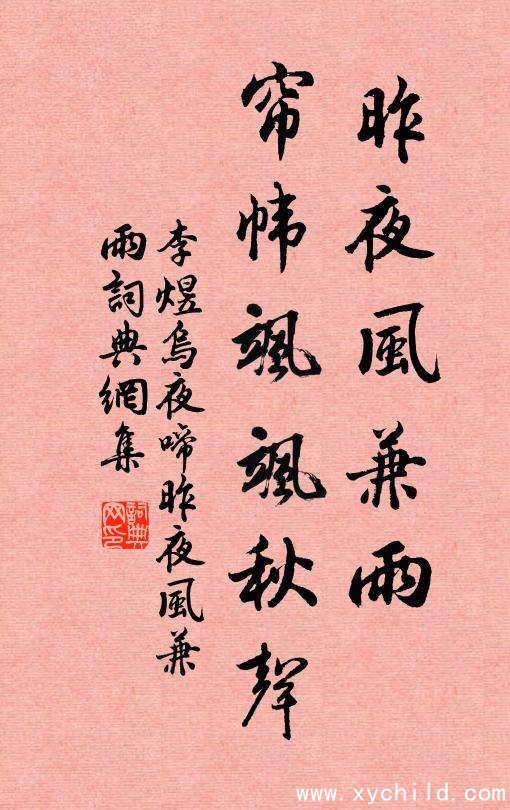 昨夜風兼雨
帘帏颯颯秋聲
李煜烏夜啼昨夜風兼
雨詞典網集
詞典网印
www.xychild.com